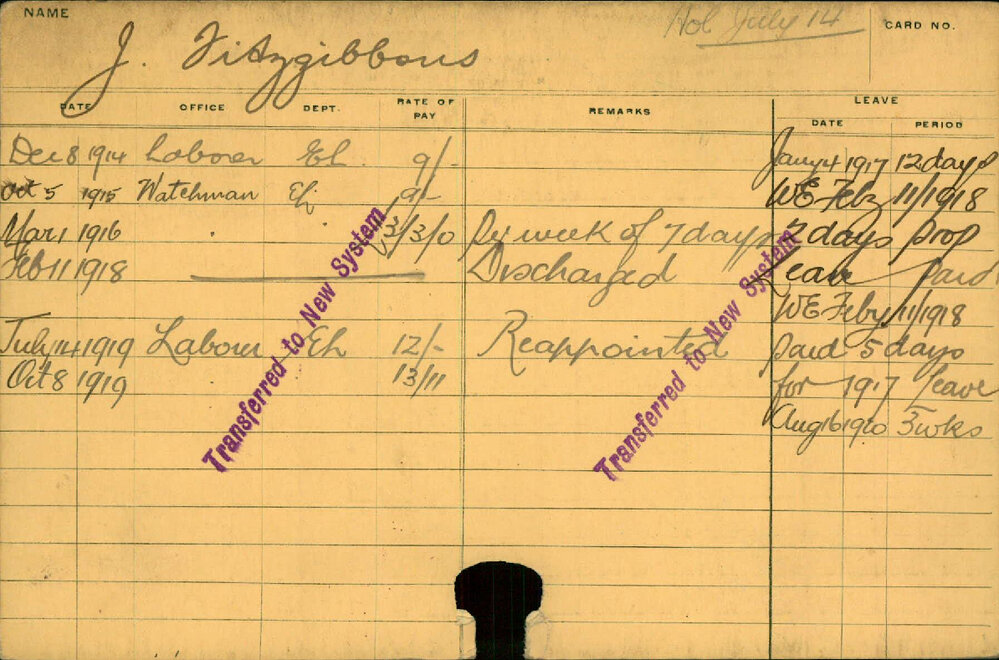 NAME
Hol July 14
CARD NO.
J. Fitzgibbons
DATE OFFICE DEPT. RATE OF PAY REMARKS LEAVE
DATE PERIOD
Dec 8 1914 Laborer Eh. 9/- Jany 4 1917 12 days
Oct 5 1915 Watchman Eh 9/- WE Feby 11/1918
Mar 1 1916 " " 3/3/0 Per week of 7 days 2 days prop
Feb 11 1918 Discharged Leave paid
WE Feby 11/1918
July 14 1919 Labour Eh 12/- Reappointed paid 5 days
Oct 8 1919 13/11 for 1917 leave
Aug 16 1920 3 wks
Transferred to New System
Transferred to New System